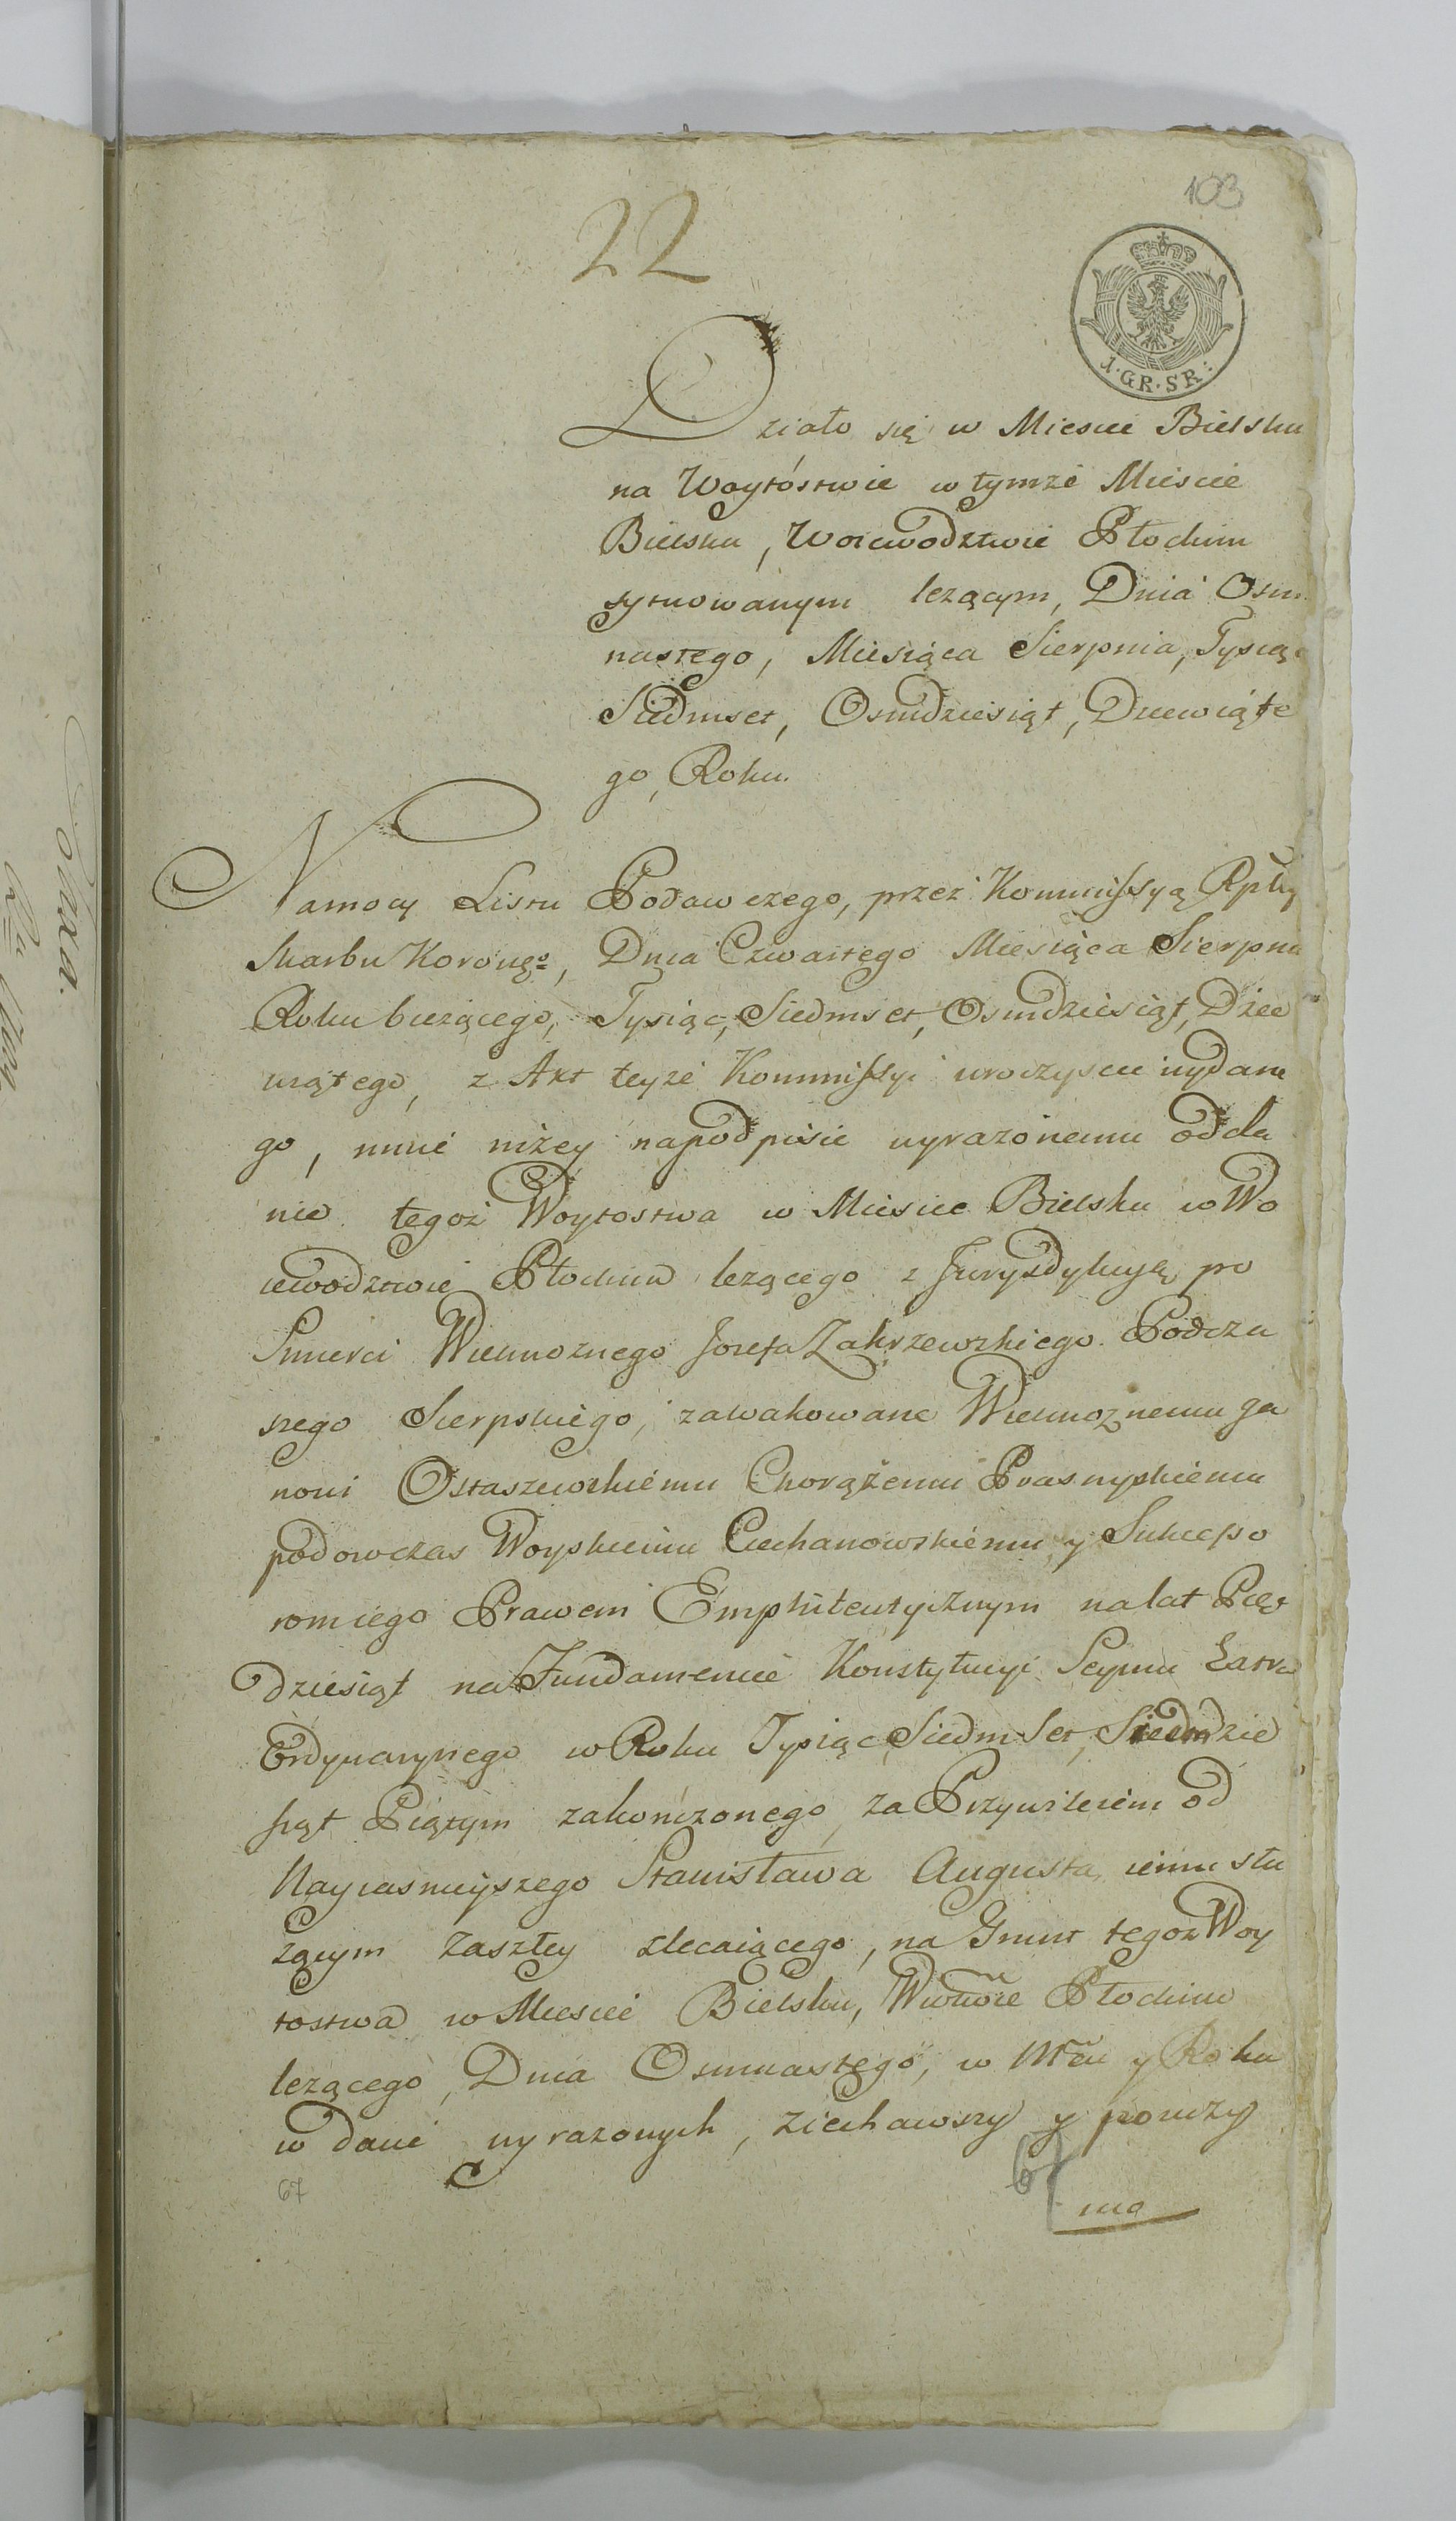 103
22
1·GR·SR:
Działo się w Miescie Bielsku
na Woytóstwie w tymże Miescie
Bielsku, Woiewodztwie Płockim
sytuowanym leżącym, Dnia Osm
nastego, Miesiąca Sierpnia, Tysiąc
Siedmset, Osmdziesiąt, Dziewiąte
go, Roku.
Namocy Listu Podawczego, przez Kommissyą Rpltey
Skarbu Koronnego, Dnia Czwartego Miesiąca Sierpnia
Roku bieżącego, Tysiąc, Siedmset, Osmdziesiąt, Dziee
wiątego, z Akt teyże Kommissyi uroczyscie wydane
go, mnie niżey napodpisie wyrażonemu odda
nie tegoż Woytostwa w Miescie Bielsku w Wo
iewodztwie Płockim leżącego z Jurysdykcyą po
Smierci Wielmożnego Jozefa Zakrzewskiego Podcza
szego Sierpskiego, zawakowane Wielmożnemu Ga
nowi Ostaszewskiemu Chorążemu Prasnyskiemu
podowczas Woyskiemu Ciechanowskiemu y Sukcesso
rom iego Prawem Emphiteutycznym na lat Pięć
dziesiąt na Fundamencie Konstytucyi Seymu Extra
Ordynaryinego w Roku Tysiąc Siedm Set, Siedmdzie
siąt Piątym zakończonego, za Przywileiem od
Nayiasnieyszego Stanisława Augusta, iemu słu
żącym Zaszłey zlecaiącego, na Grunt tegoż Woy
tostwa w Miescie Bielsku, Wwdztwie Płockim
leżącego, Dnia Osmnastego, w Mcu y Roku
w dacie wyrazonych, Ziechawszy y powzy
67
67
ma